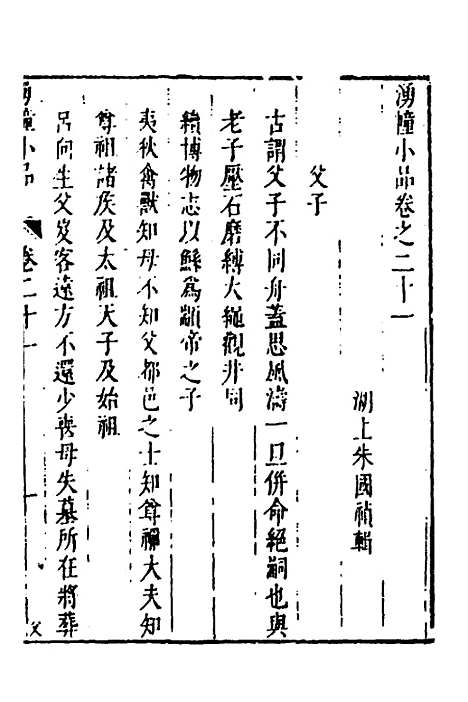 湧幢小品卷之二十一
湖上朱國禎輯
父子
古謂父子不同舟蓋思風濤一旦併命絕嗣也與
老子壓石磨縛大繩觀井同
續博物志以鯀為顓帝之子
夷狄禽獸知母不知父都邑之士知尊禰大夫知
尊祖諸矦及太祖天子及始祖
呂向生父岌客遠方不還少喪母失墓所在將葬
湧幢小品 卷二十一 一